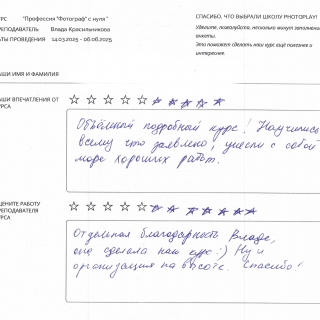 РС "Профессия "Фотограф" с нуля"
РЕПОДАВАТЕЛЬ Влада Красильникова
АТЫ ПРОВЕДЕНИЯ 14.03.2025 - 06.06.2025
СПАСИБО, ЧТО ВЫБРАЛИ ШКОЛУ PHOTOPLAY!
Уделите, пожалуйста, несколько минут заполнению
анкеты.
Это поможет сделать наш курс ещё полезнее и
интереснее.
АШИ ИМЯ И ФАМИЛИЯ
АШИ ВПЕЧАТЛЕНИЯ ОТ
УРСА
Объёмный подробный курс! Научились
всему что заявлено, унесли с собой
море хороших работ.
ЦЕНИТЕ РАБОТУ
РЕПОДАВАТЕЛЯ
УРСА
Отдельная благодарность Владе,
она сделала наш курс :) Ну и
организация на высоте. Спасибо!